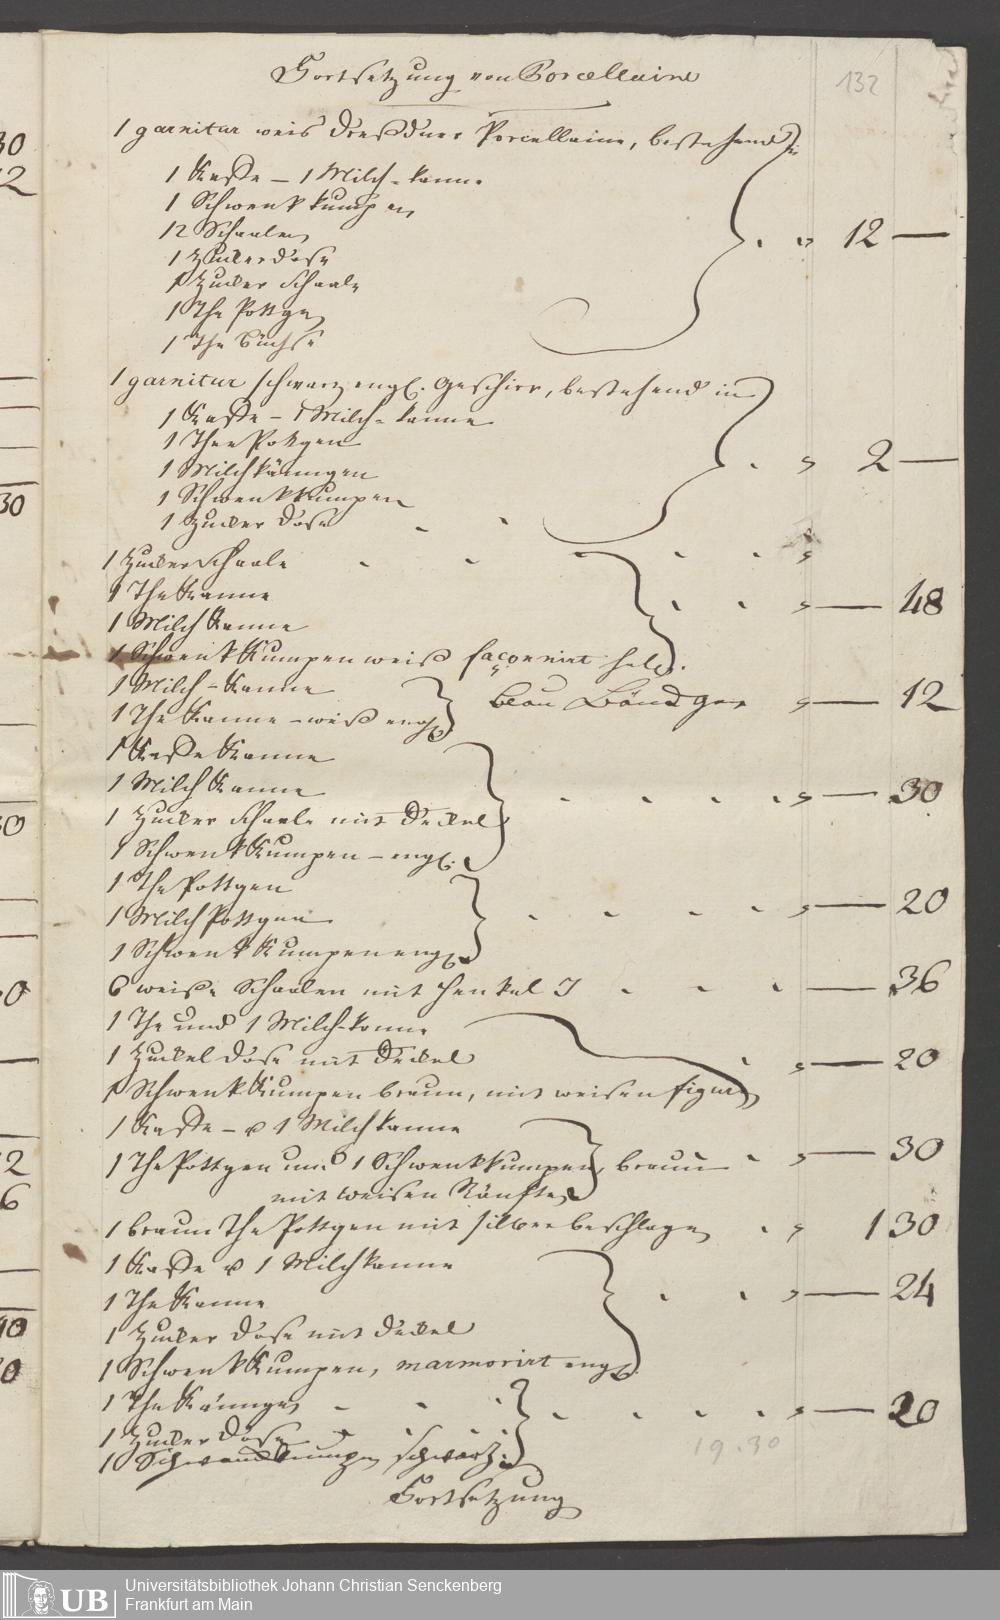 Fortsetzung von Porcellaine
132
1 garnitur weis Dreßdner Porcellaine, bestehend in
1 Kaffe - 1 Milch-kanne
1 Schwenkkumpen
12 Schaalen
12 —
1 Zuckerdose
1 Zucker Schaale
1 The Pottgen
1 The Büchse
1 garnitur schwarz engl. Geschirr, bestehend in
1 Kaffe - 1 Milch-kanne
1 Thee Pottgen
1 Milchkänngen
2 —
1 Schwenkkumpen
1 Zucker Dose
1 Zuckerschaale
1 The Kanne
1 Milch Kanne
— 48
1 Schwenk Kumpen weiß façonnirt
1 Milch-Kanne
blau Bändger — 12
1 The Kanne - weiß engl.
1 Kaffe Kanne
1 Milch Kanne
— 30
1 Zucker Schaale mit Deckel
1 Schwenk Kumpen - engl.
1 The Pottgen
1 Milch Pottgen
— 20
1 Schwenk Kumpen engl.
6 weiße Schaalen mit Henkel — 36
1 The und 1 Milch-kanne
1 Zuckel Dose mit Deckel — 20
1 Schwenk Kumpen braun, mit weisen figuren
1 Kaffe - u 1 Milch kanne
1 The Pottgen und 1 Schwenkkumpen, braun — 30
mit weisen Ränften
1 braun The Pottgen mit silber beschlagen 1 30
1 Kaffe u 1 Milch kanne
1 The Kanne — 24
1 Zucker Dose mit Deckel
1 Schwenk Kumpen, marmorirt engl.
1 The Känngen
— 20
1 Zucker Dose
1 Schwenkkumpen schwarz.
19.30
Fortsetzung
UB
Universitätsbibliothek Johann Christian Senckenberg
Frankfurt am Main